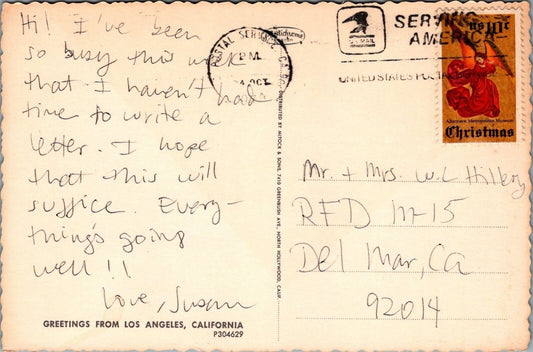 Hi! I've been
so busy this week
that I haven't had
time to write a
letter. I hope
that this will
suffice. Every-
thing's going
well!!
Love, Susan
GREETINGS FROM LOS ANGELES, CALIFORNIA
P304629
DISTRIBUTED BY MITOCK & SONS, 7410 GREENBUSH AVE., NORTH HOLLYWOOD, CALIF.
POSTAL SERVICE, CA
PM
OCT
U.S. MAIL
SERVING
AMERICA
UNITED STATES POSTAL
US
Christmas
Mr. + Mrs. W.C. Hillery
RFD
Del Mar, Ca
92014